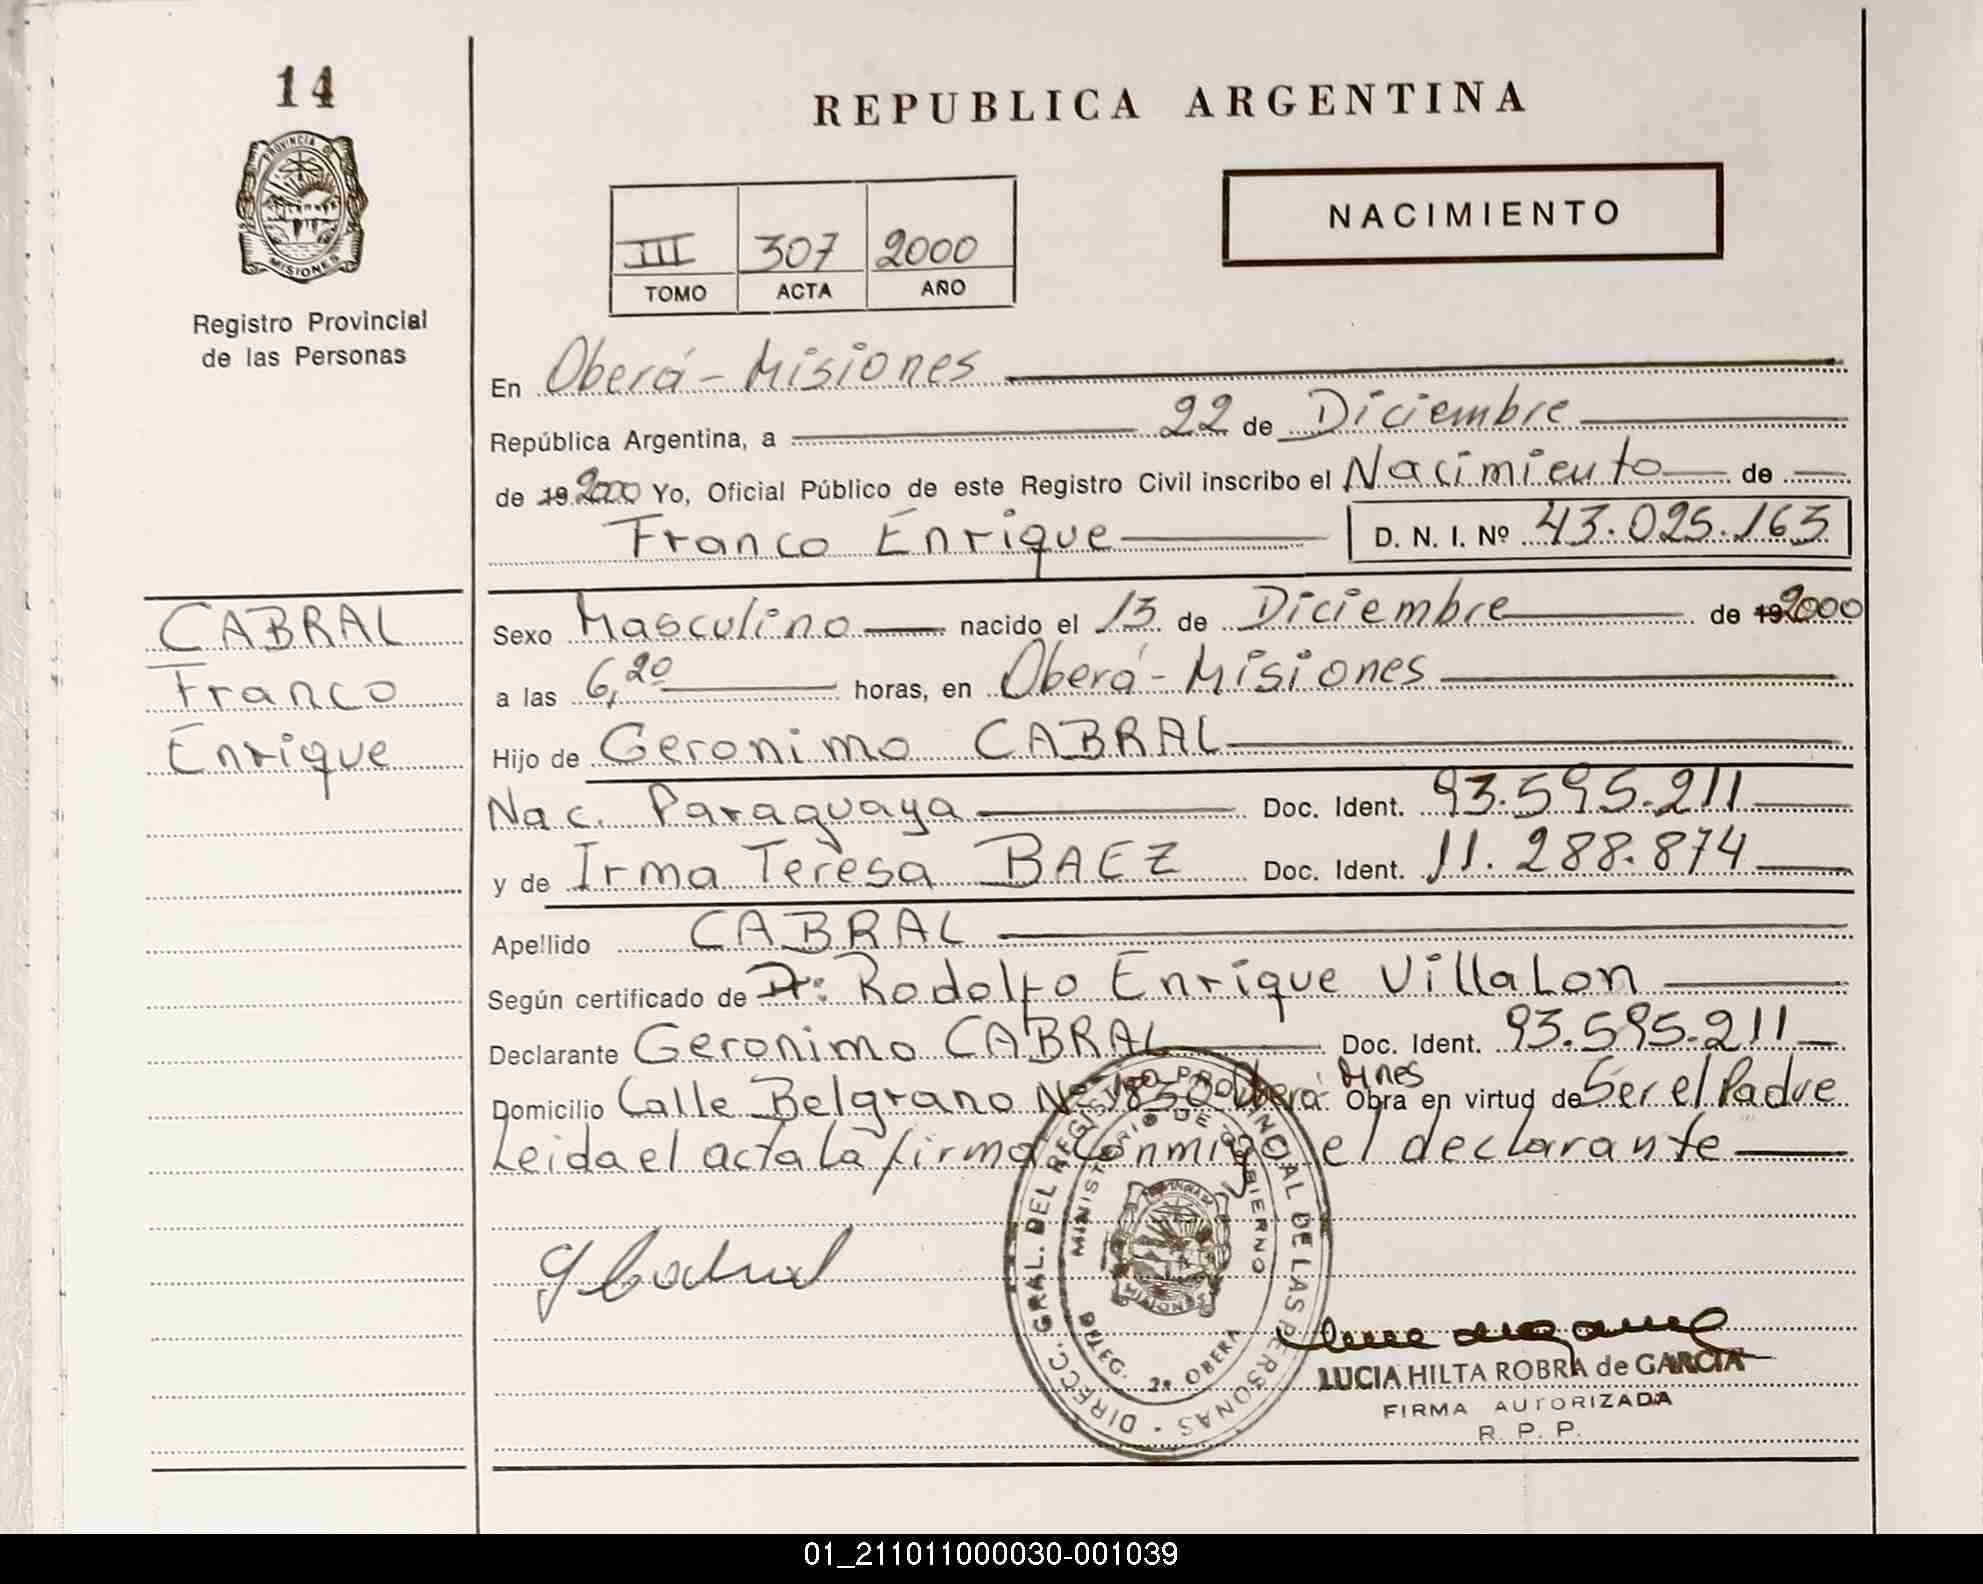 14
PROVINCIA DE
MISIONES
Registro Provincial
de las Personas
REPUBLICA ARGENTINA
III 307 2000
TOMO ACTA AÑO
NACIMIENTO
En Oberá - Misiones
República Argentina, a 22 de Diciembre
de 19 2000 Yo, Oficial Público de este Registro Civil inscribo el Nacimiento de
Franco Enrique D. N. I. Nº 43.025.163
CABRAL
Franco
Enrique
Sexo Masculino nacido el 13 de Diciembre de 19 2000
a las 6,20 horas, en Oberá - Misiones
Hijo de Geronimo CABRAL
Nac. Paraguaya Doc. Ident. 93.595.211
y de Irma Teresa BAEZ Doc. Ident. 11.288.874
Apellido CABRAL
Según certificado de Dr: Rodolfo Enrique Villalon
Declarante Geronimo CABRAL Doc. Ident. 93.595.211
Domicilio Calle Belgrano Nº 1850 Oberá Mnes Obra en virtud de Ser el Padre
Leida el acta la firma conmigo el declarante
DIRECC. GRAL. DEL REGISTRO PROVINCIAL DE LAS PERSONAS
MINISTERIO DE GOBIERNO
MISIONES
DELEG. 2a OBERA
G Cabral
LUCIA HILTA ROBRA de GARCIA
FIRMA AUTORIZADA
R. P. P.
01_211011000030-001039